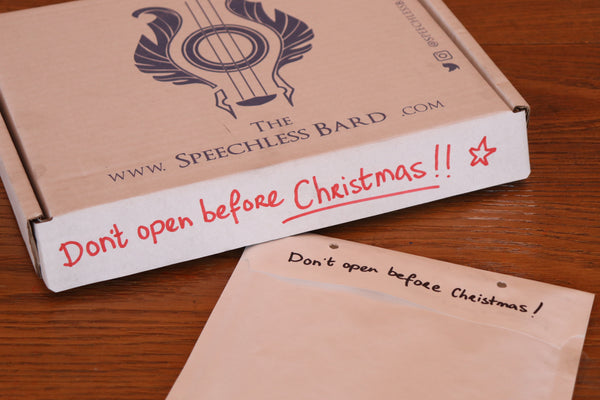 @SPEECHLESSB
THE
www. SPEECHLESS BARD .COM
Don't open before Christmas!!
Don't open before Christmas!